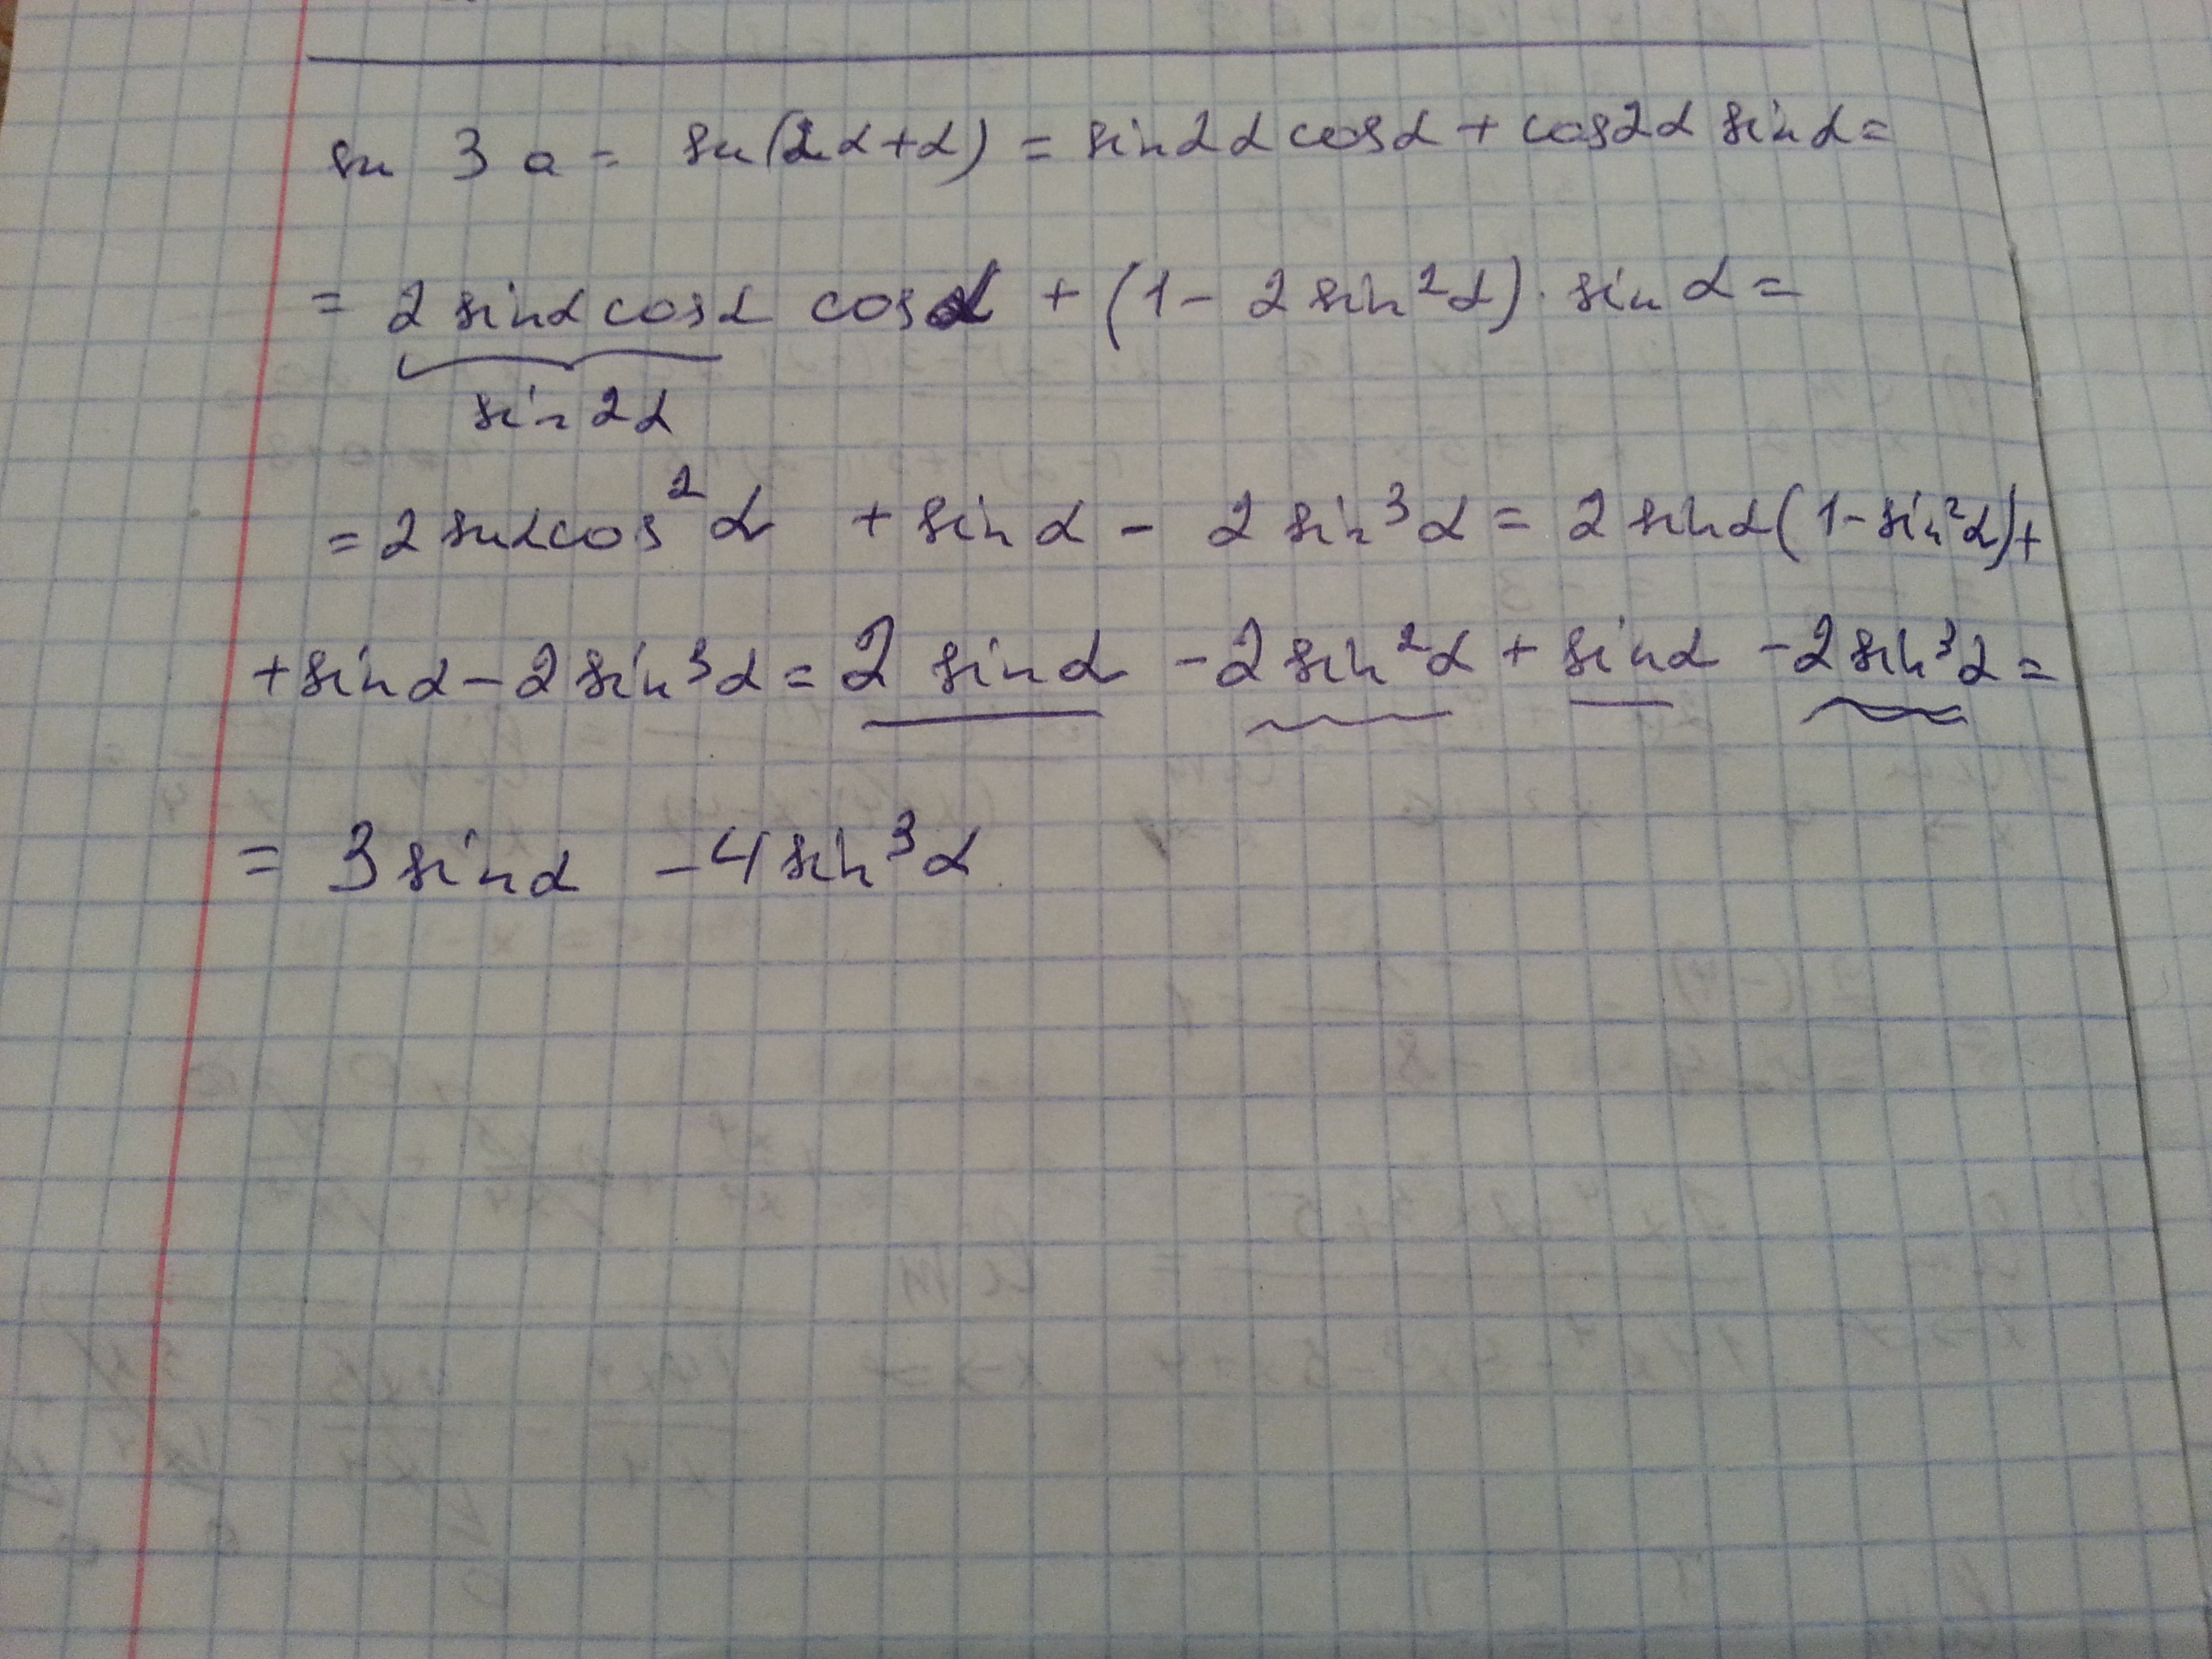 sin 3 a = sin(2α+α) = sin2α cosα + cos2α sinα =
= 2 sinα cosα cosα + (1 - 2 sin²α) · sin α =
sin 2α
= 2 sinαcos²α + sin α - 2 sin³α = 2 sinα(1-sin²α)+
+sinα-2 sin³α = 2 sinα -2 sin²α + sinα -2 sin³α =
= 3 sinα -4 sin³α